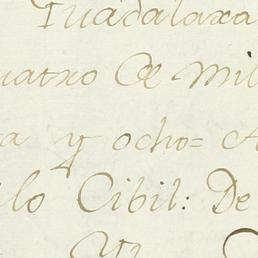 Guadalaxa
uatro de mil
a y ocho= A
lo Cibil: De